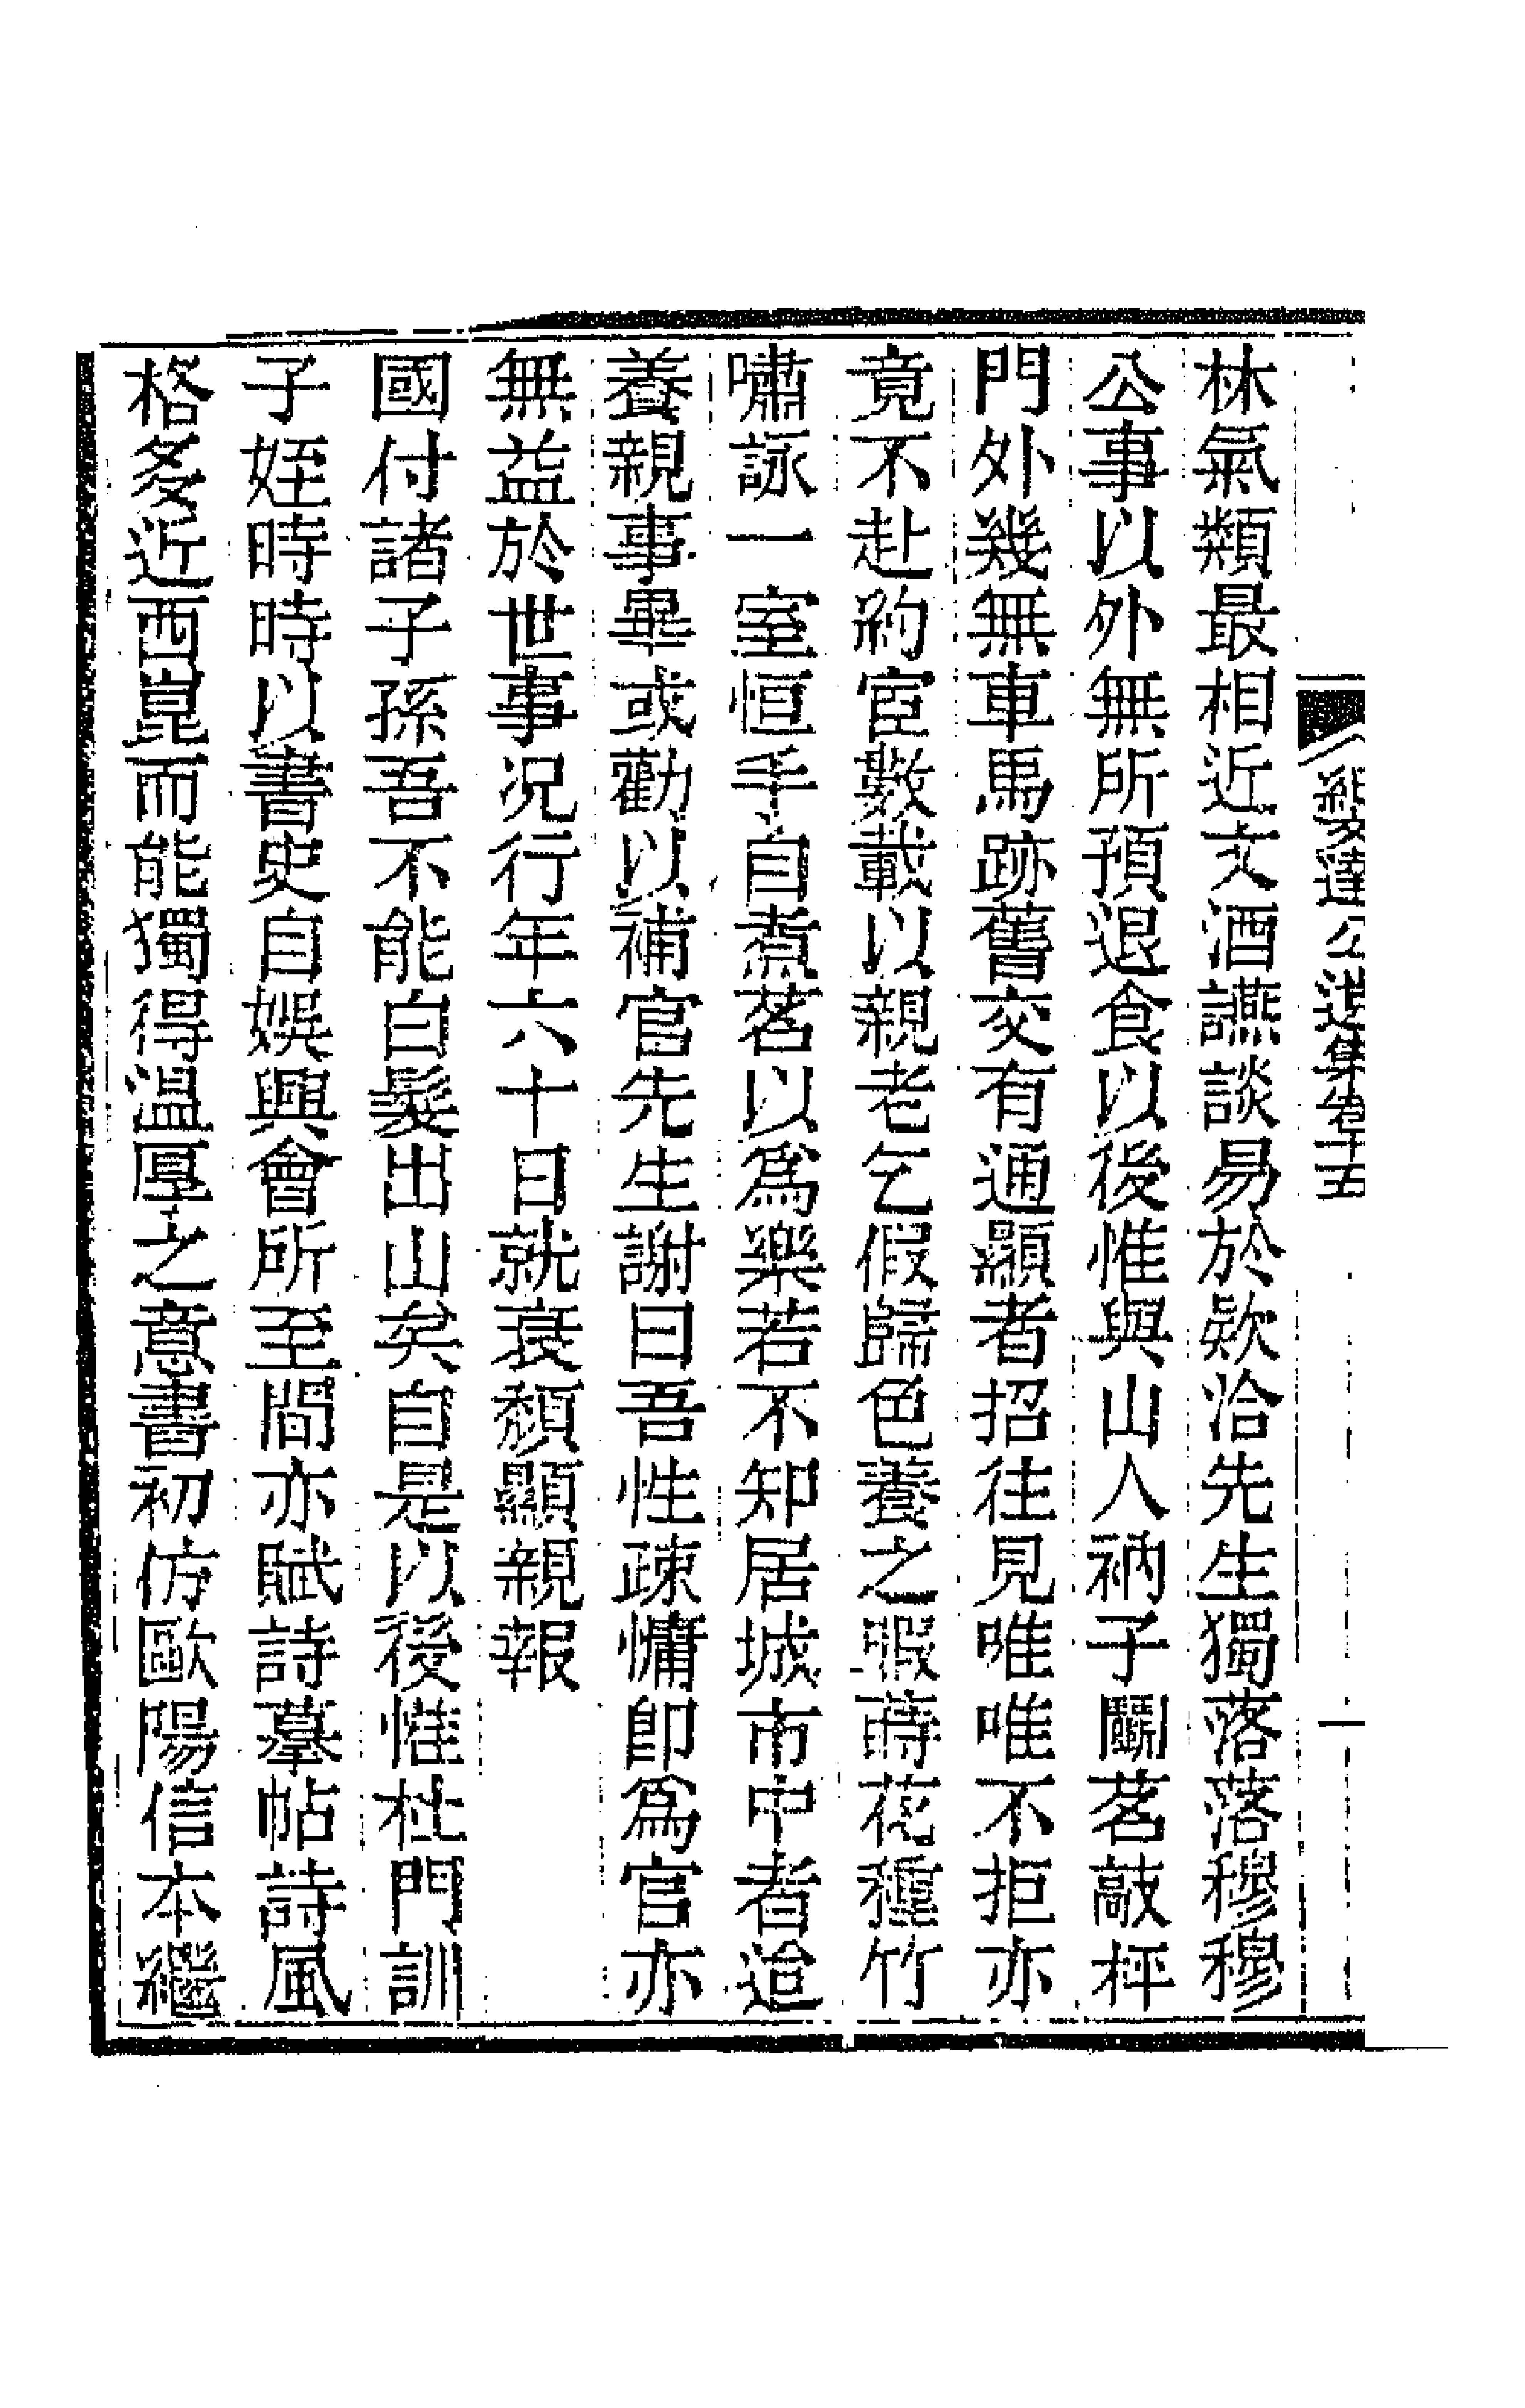 紀文達公遺集卷十五
一
林氣類最相近文酒讌談易於欵洽先生獨落落穆穆
公事以外無所預退食以後惟與山人衲子鬭茗敲枰
門外幾無車馬跡舊交有通顯者招往見唯唯不拒亦
竟不赴約宦數載以親老乞假歸色養之暇蒔花種竹
嘯詠一室恒手自煑茗以爲樂若不知居城市中者迨
養親事畢或勸以補官先生謝曰吾性疎慵卽爲官亦
無益於世事况行年六十日就衰頽顯親報
國付諸子孫吾不能白髮出山矣自是以後惟杜門訓
子姪時時以書史自娛興會所至間亦賦詩摹帖詩風
格多近西崑而能獨得温厚之意書初仿歐陽信本繼